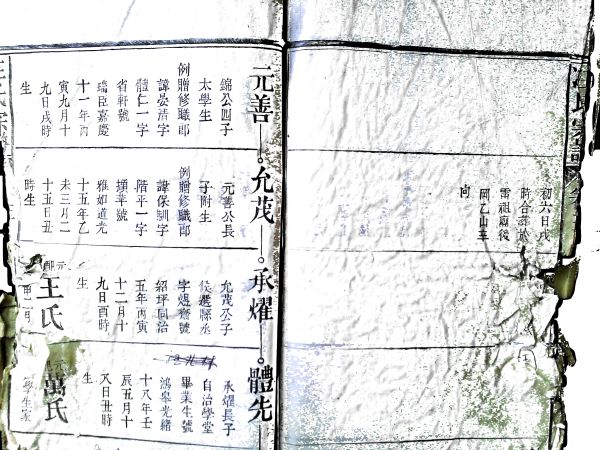 初六日戌
時合葬於
雷祖廟後
岡乙山辛
向
元善
錦公四子
太學生
例贈修職郎
諱晏清字
體仁一字
省軒號
瑞臣嘉慶
十一年丙
寅九月十
九日戌時
生
允茂
元善公長
子附生
例贈修職郎
諱保馴字
階平一字
號
雅如道光
十五年乙
未三月二
十五日丑
時生
承燿
允茂公子
侯選縣丞
字號
紹坪同治
五年丙寅
十二月十
九日酉時
生
元配
王氏
體先
承燿長子
自治學堂
畢業生號
鴻皋光緒
十八年壬
辰五月十
八日丑時
生
萬氏